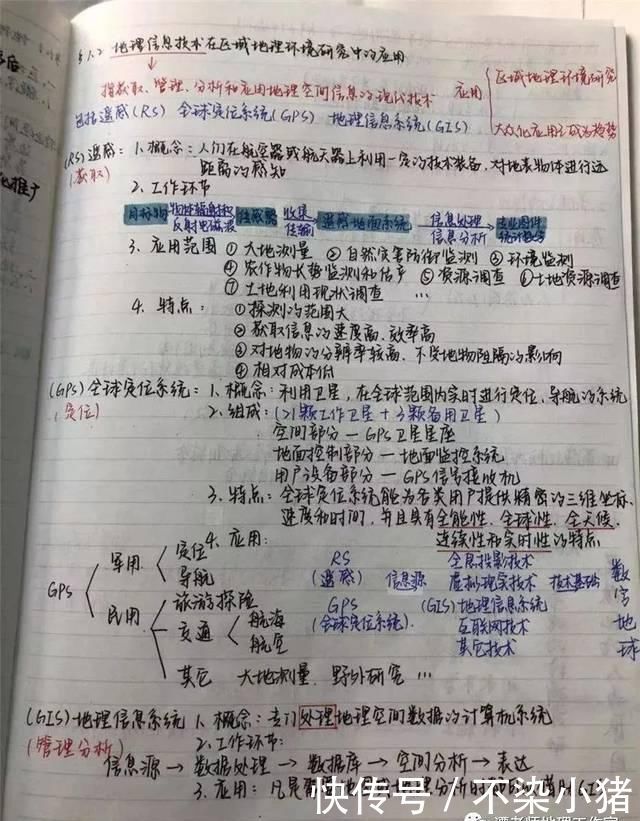 §1.2 地理信息技术在区域地理环境研究中的应用
指获取、管理、分析和应用地理空间信息的现代技术 应用
区域地理环境研究
大众化应用已成为趋势
包括遥感(RS) 全球定位系统(GPS) 地理信息系统(GIS)
(RS)遥感: 1. 概念: 人们在航空器或航天器上利用一定的技术装备,对地表物体进行远
(获取)
距离的感知
2. 工作环节
目标物 反射电磁波 传感器 收集 传输 遥感地面系统 信息处理 信息分析 专业图件 统计数字
3. 应用范围 ①大地测量 ②自然灾害防御监测 ③环境监测
④农作物长势监测和估产 ⑤资源调查 ⑥土地资源调查
⑦土地利用现状调查 …
4. 特点: ①探测的范围大
②获取信息的速度高、效率高
③对地物的分辨率较高、不受地物阻隔的影响
④相对成本低
(GPS)全球定位系统: 1. 概念: 利用卫星,在全球范围内实时进行定位、导航的系统
(定位)
2. 组成: (21颗工作卫星+3颗备用卫星)
空间部分—GPS卫星星座
地面控制部分—地面监控系统
用户设备部分—GPS信号接收机
3. 特点: 全球定位系统能为各类用户提供精密的三维坐标、
速度和时间,并且具有全能性、全球性、全天候、
连续性和实时性的特点
4. 应用:
GPS
军用 定位 导航
民用 旅游探险
交通 航海 航空
其它 大地测量、野外研究 …
RS 全息投影技术
(遥感) 信息源 虚拟现实技术 技术基础
GPS (GIS)地理信息系统
(全球定位系统) 互联网技术
其它技术
数字地球
(GIS)地理信息系统 1. 概念: 专门处理地理空间数据的计算机系统
(管理分析)
2. 工作环节:
信息源→数据处理→数据库→空间分析→表达
3. 应用: 凡是
快传号 / 不染小猪